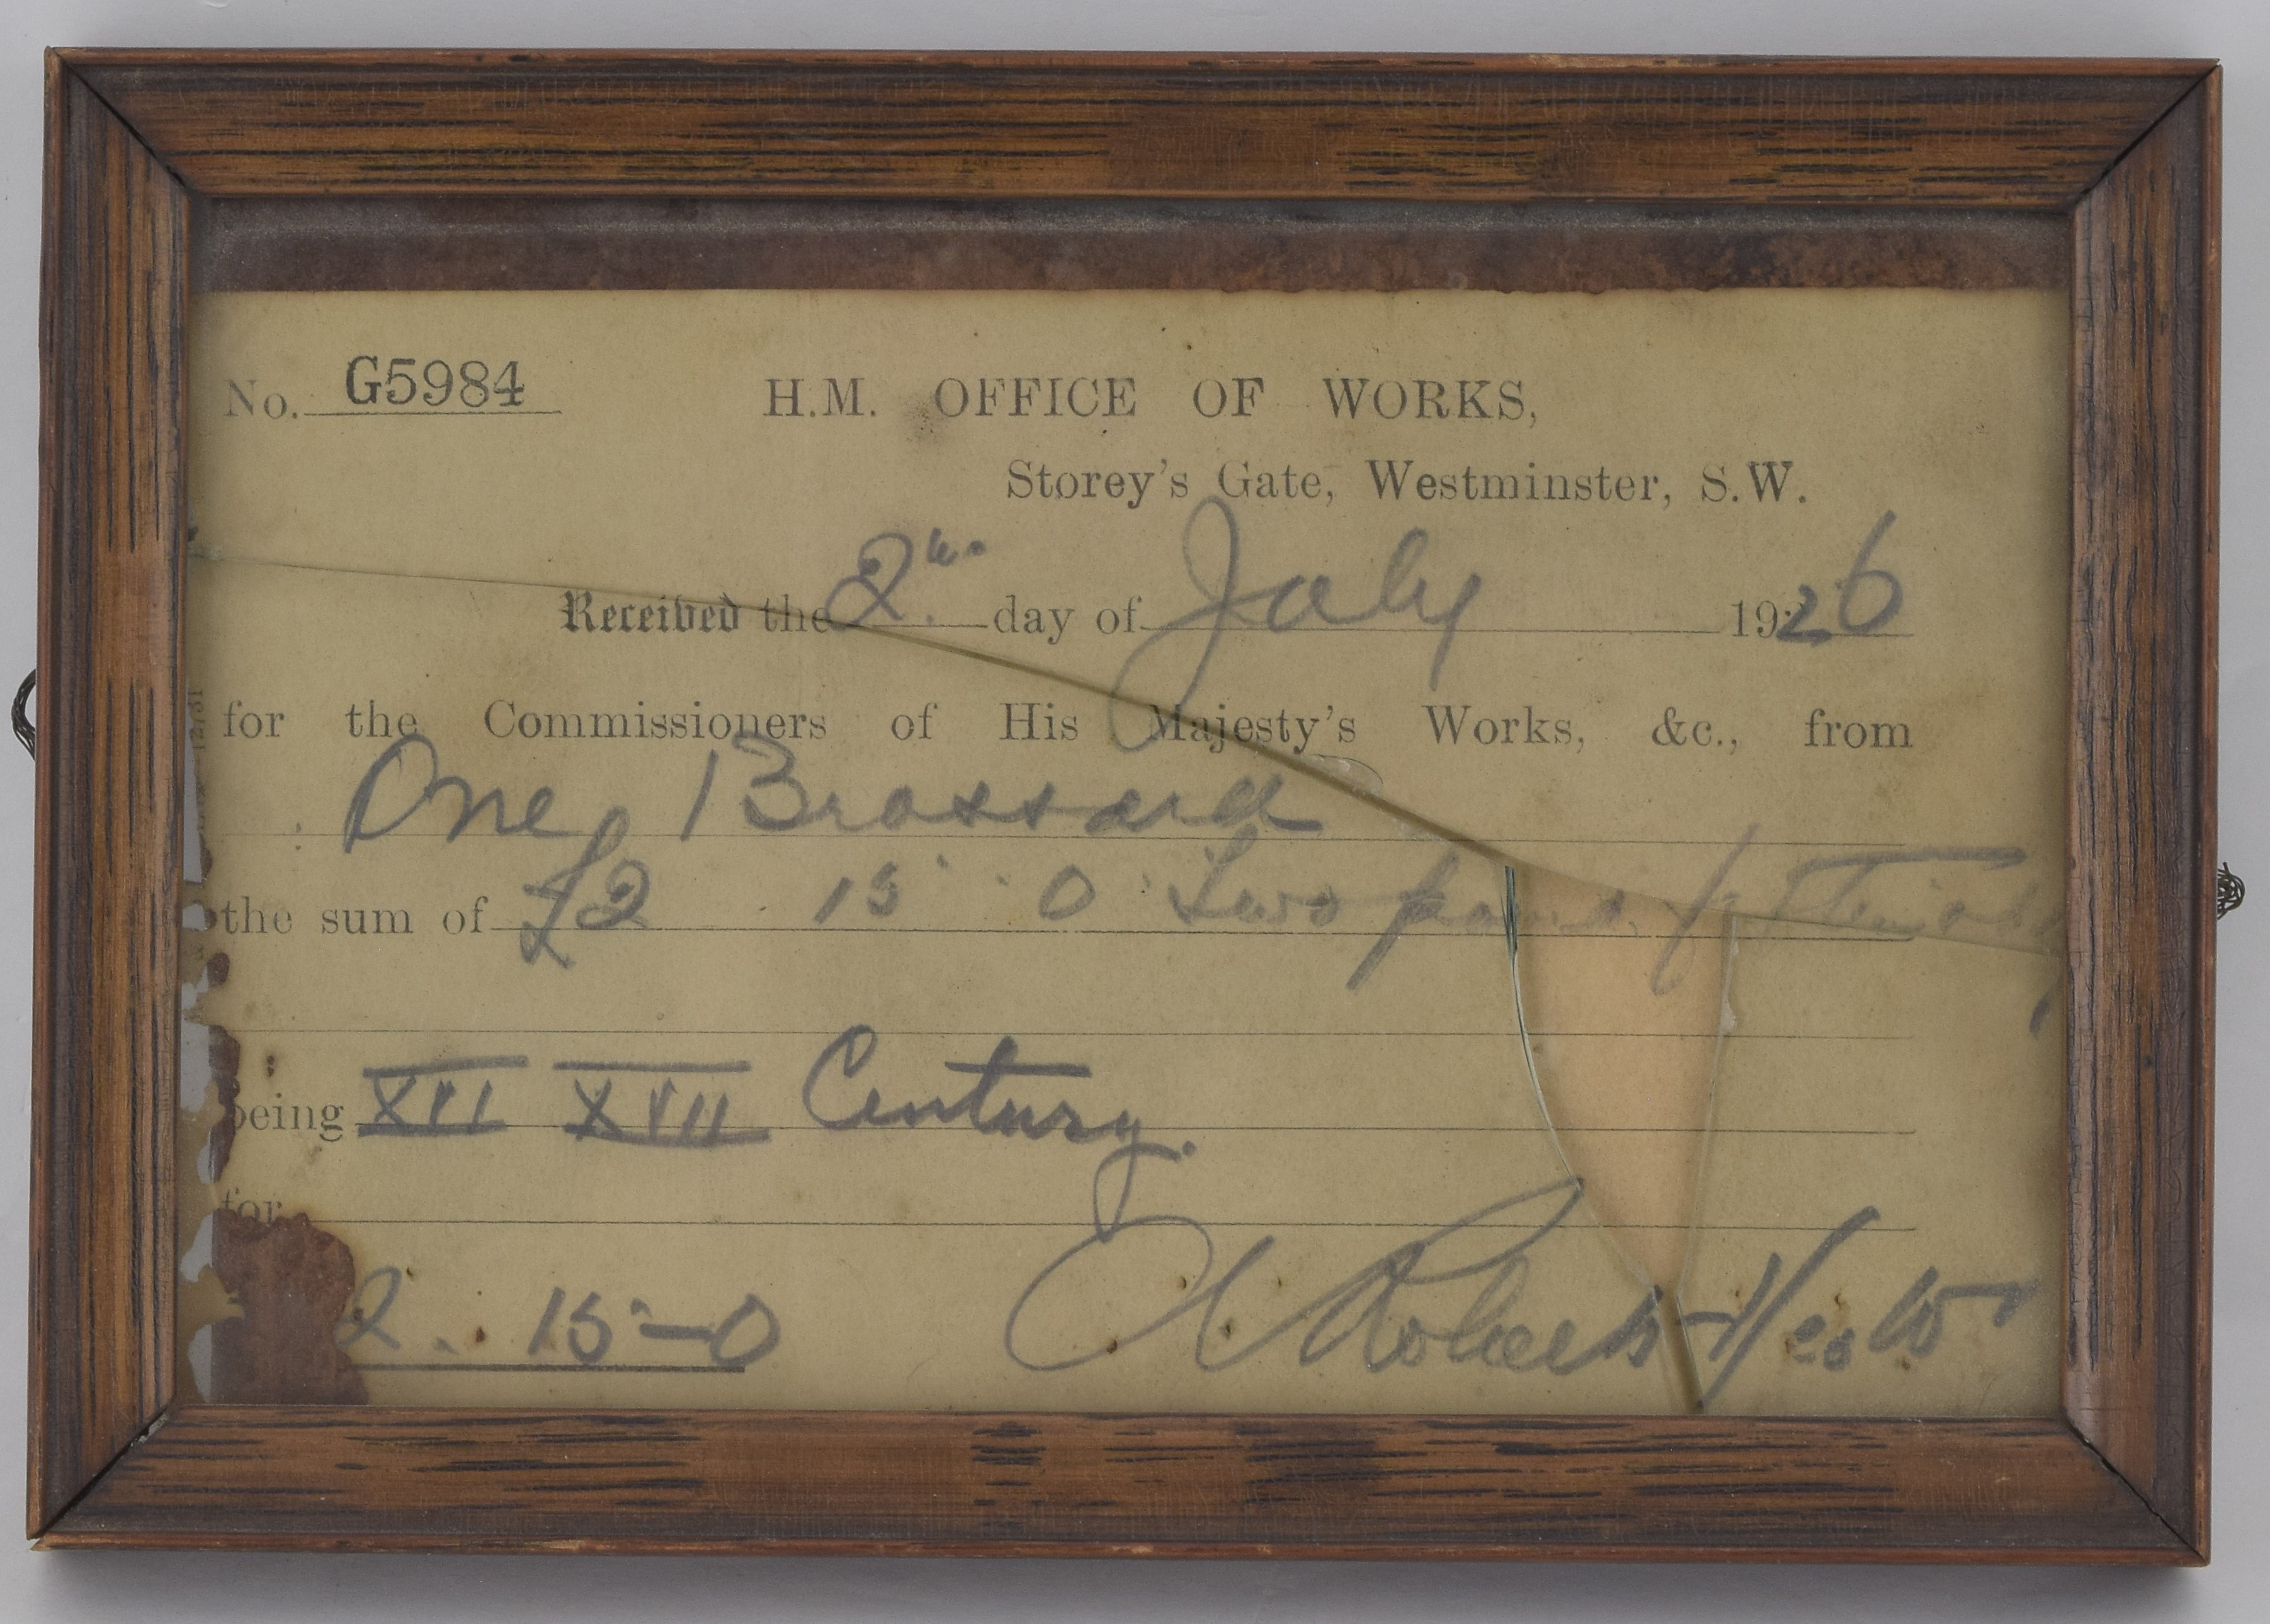 No. G5984 H.M. OFFICE OF WORKS,
Storey's Gate, Westminster, S.W.
Received the 2 day of July 1926
for the Commissioners of His Majesty's Works, &c., from
One Brassard
the sum of £2 15 0 Two
being XVI XVII Century.
for
2. 15-0